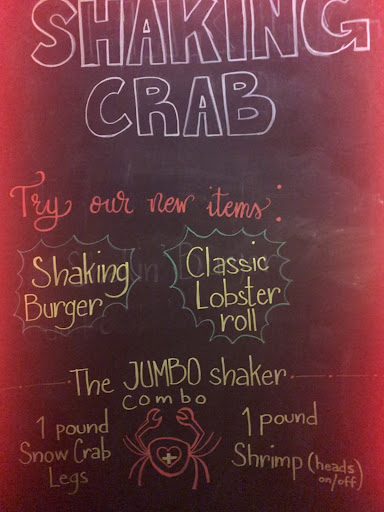 SHAKING
CRAB
Try our new items:
Shaking
Burger
Classic
Lobster
roll
The JUMBO shaker
combo
1 pound
Snow Crab
Legs
1 pound
Shrimp (heads
on/off)